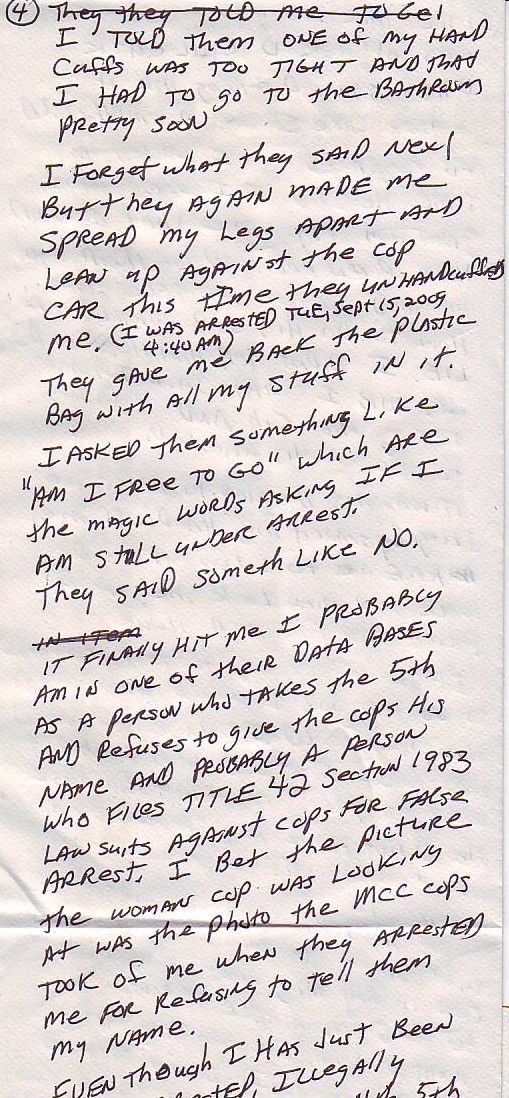 ④ They they TOLD me TO Ge
I TOLD Them ONE of my HAND
Cuffs WAS TOO TIGHT AND that
I HAD TO go TO the BATHROOM
pretty SOON
I Forget what they SAID Next
But they AGAIN MADE me
SPREAD my Legs APART AND
LEAN up AGAINST the cop
CAR This TIme they UNHANDcuffed
me. (I WAS ARRESTED TUE, Sept 15, 2009
4:40 AM)
They gave me BACK The plastic
BAG with All my stuff IN it.
I ASKED Them something LIKE
"AM I FREE TO GO" which ARE
the MAGIC WORDS ASKING IF I
AM STILL UNDER ARREST.
They SAID someth LIKE NO.
IN ITEM
IT FINAlly HIT me I PROBABLY
AM IN ONE of their DATA BASES
AS A PERSON who TAKES the 5th
AND Refuses to give the cops His
NAME AND PROBABLY A PERSON
who FILES TITLE 42 Section 1983
LAW suits AGAINST cops FOR FALSE
ARREST. I Bet the picture
the WOMAN cop WAS LOOKING
At WAS the photo the MCC cops
TOOK of me when they ARRESTED
me FOR Refusing to tell them
my NAME.
EVEN Though I HAS Just BEEN
ILLegally
5th